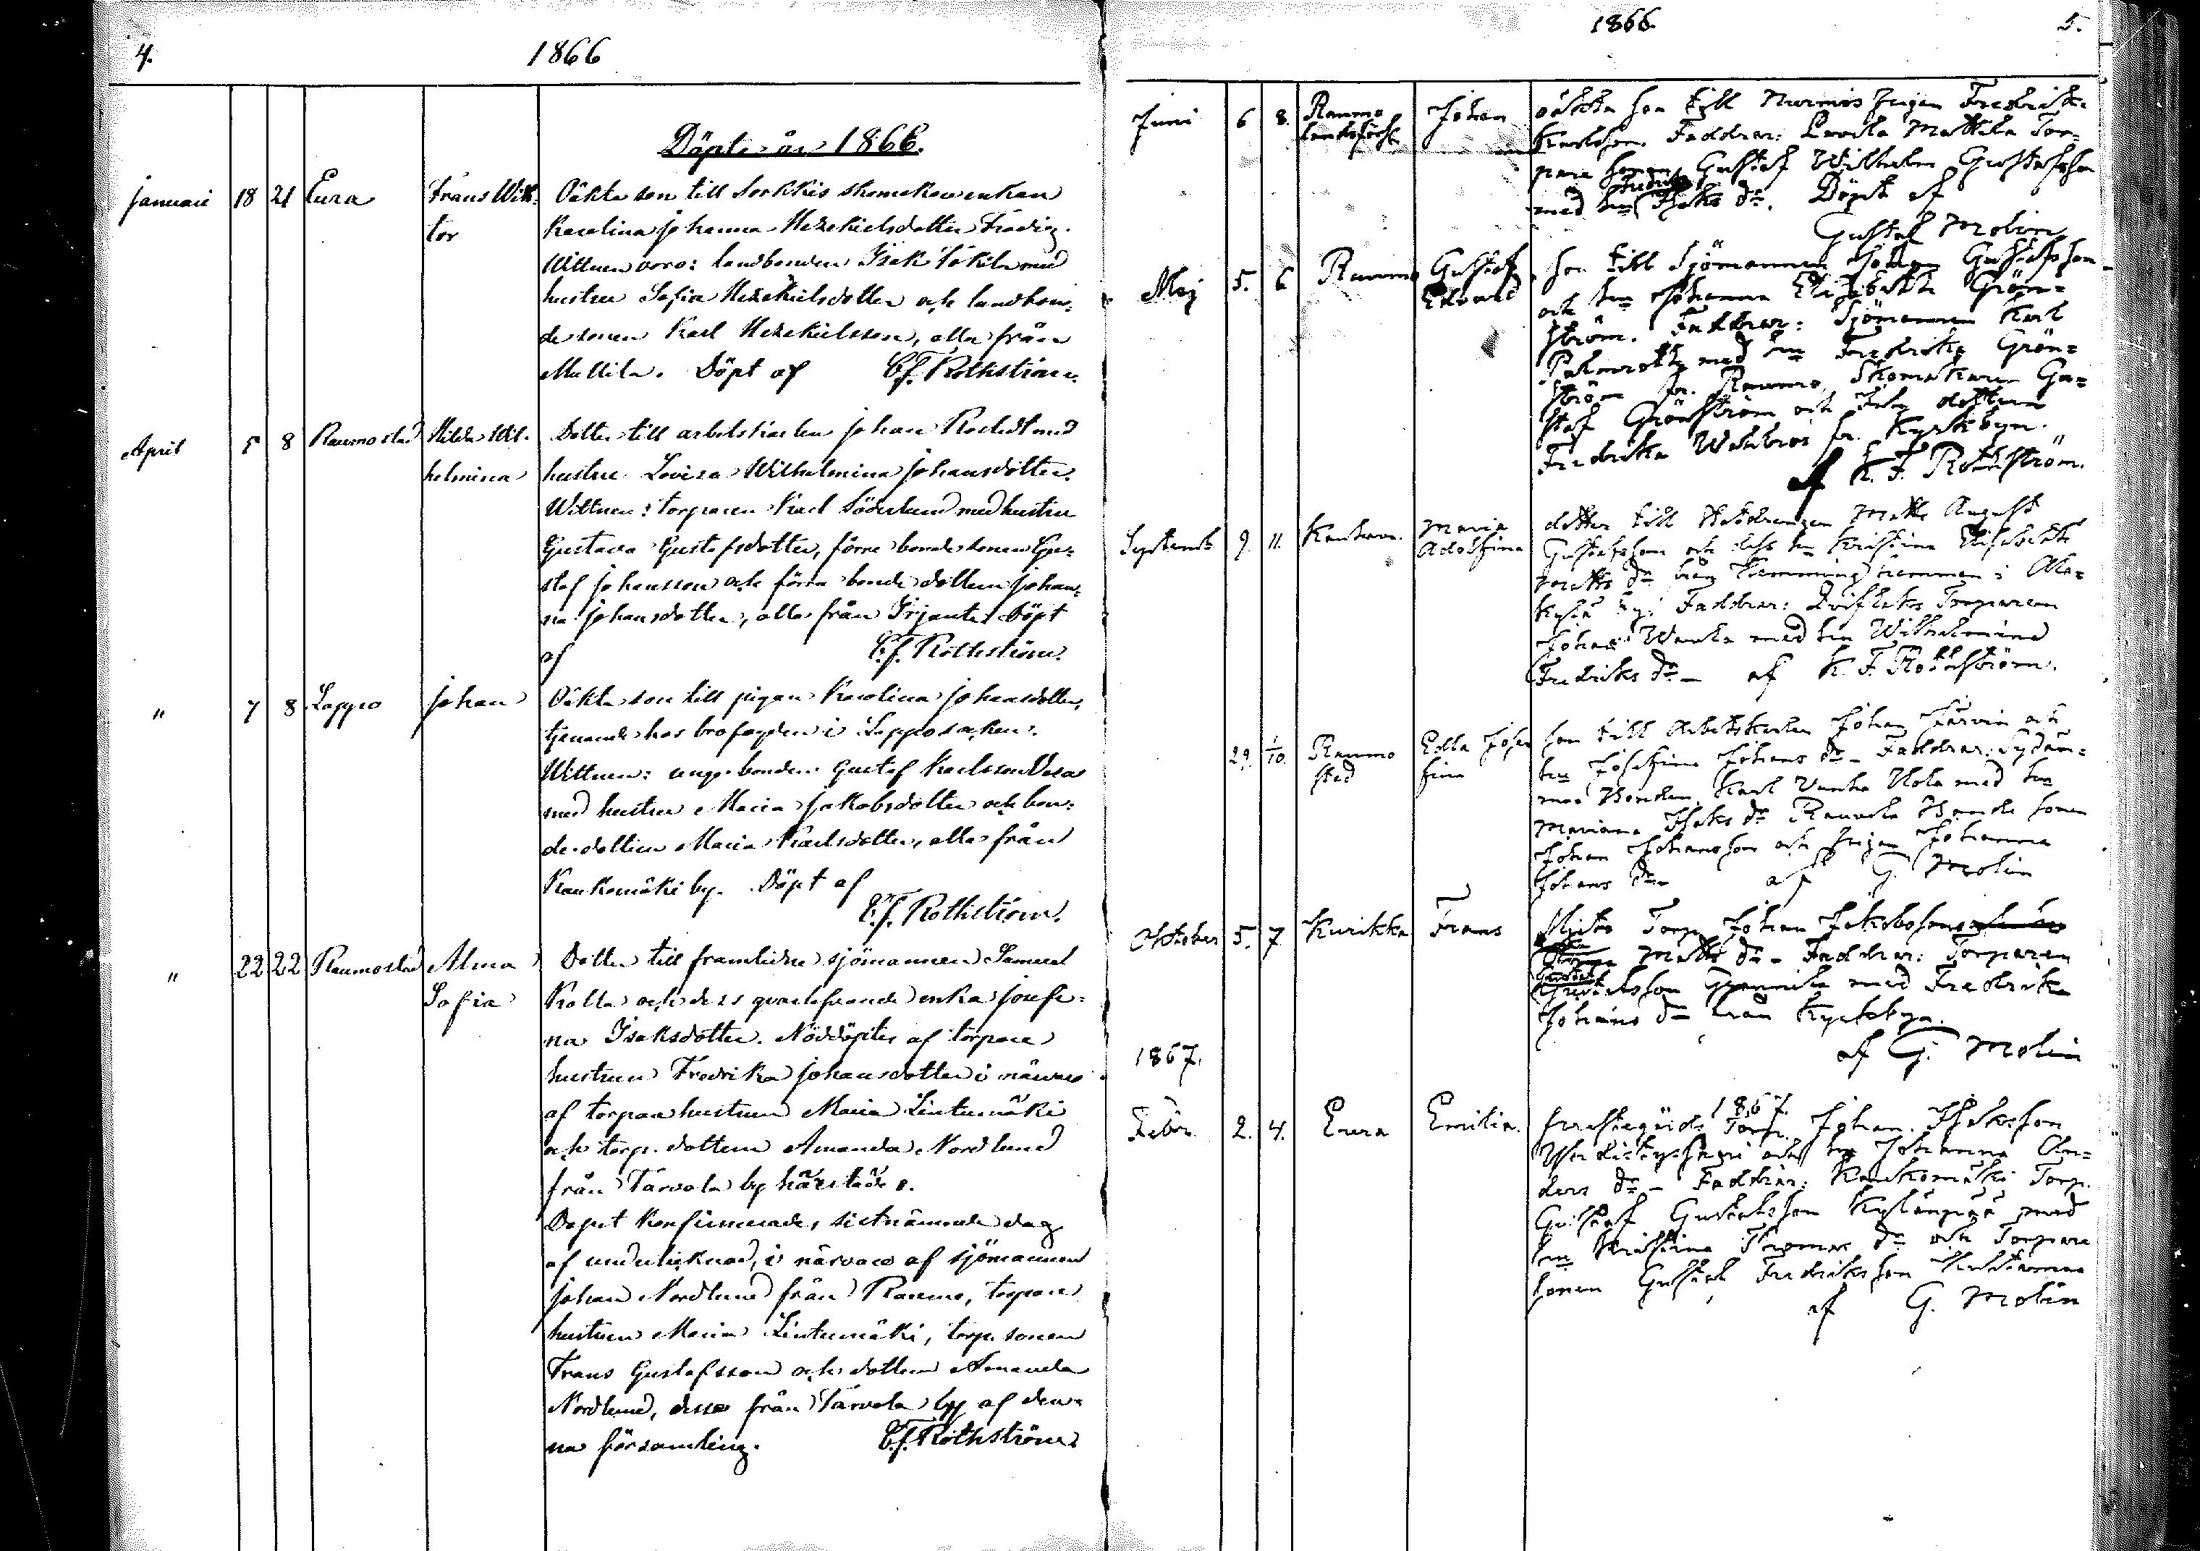 4.
1866
Döpte år 1866.
Januari 18 21 Eura Frans Wik-
tor
Oäkta son till Sorkkis skomakareenkan
Karolina Johanna Hezekielsdotter Fredig.
Wittnen voro: landbonden Isak Sökila med
hustru Sofia Hezekielsdotter och landbon-
de sonen Karl Hezekielsson, alla från
Mullila. Döpt af C.f. Rothström.
April 5 8 Raumo stad Hilda Wil-
helmina
Dotter till arbetskarlen Johan Rostedt med
hustru Lovisa Wilhelmina Johansdotter.
Wittnen: torparen Karl Söderlund med hustru
Gustava Gustafsdotter, förre bonde sonen Gu-
staf Johansson och förra bonde dottern Johan-
na Johansdotter, alla från Irjante. Döpt
af C.f. Rothström.
" 7 8 Lappo Johan
Oäkta son till pigan Karolina Johansdotter,
tjenande hos brofogden i Lappo socken.
Wittnen: unge bonden Gustaf Karlsson Uusa
med hustru Maria Jakobsdotter och bon-
de dottern Maria Karlsdotter, alla från
Kaukomäki by. Döpt af
C.f. Rothström.
" 22 22 Raumo stad Alma
Sofia
Dotter till framlidne sjömannen Samuel
Kalla och dess qvarlefvande enka Josefi-
na Isaksdotter. Nöddöptes af torpare
hustrun Fredrika Johansdotter i närvaro
af torpare hustrun Maria Lintumäki
och torp. dottern Amanda Nordlund
från Tarvola by härstädes.
Dopet konfirmerade, sistnämnde dag
af undertecknad, i närvaro af sjömannen
Johan Nordlund från Raumo, torpare
hustrun Maria Lintumäki, torp. sonen
Frans Gustafsson och dottern Amanda
Nordlund, desse från Tarvola by af den-
na församling. C.f. Rothström.
1866.
5.
Juni 6 8. Raumo
landsförs. Johan
oäkta son till Nurmis pigan Fredrika
Karlsson. Faddrar: Mattila Tor-
pare sonen Gustaf Wilhelm Gustafsson
med hu Isaks dr. Döpt af
Gustaf Molin
Maj 5. 6 Raumo Gustaf
Edvard
son till Sjömannen Johan Gustafsson
och hu Johanna Elisabeth Grön-
ström. Faddrar: Sjömannen Karl
Palmroth med hu Fredrika Grön-
ström fr. Raumo, Skomakaren Gu-
staf Grönström och dottren
Fredrika Wahlroos fr. Kyrkbyn.
af K. F. Rothström.
Septemb. 9. 11. Maria
Adolfina
dotter till Matts August
Gustafsson och dess hu Kristina Elisabeth
Matts dr från hemman i
by. Faddrar: Torparen
Johan med hu Wilhelmina
Fredriks dr - af K. F. Rothström.
29. 1/10. Raumo
stad Edla Jose
fina
son till Arbetskarlen Johan Järvin och
hu Josefina Johans dr - Faddrar: Sydän-
maa Bonden Karl Vanha Uola med hu
Mariana Isaks dr Bonde sonen
Johan Johansson och pigan Johanna
Johans dr af G. Molin
Oktober 5. 7. Kurikka Frans
Torp. Johan Jakobsson
Matts dr - Faddrar: Torparen
Gustafsson med Fredrika
Johans dr från Kyrkbyn.
af G. Molin
1867.
1867.
Febr. 2. 4. Eura Emilia.
Torp. Johan Isaksson
och hu Johanna An-
ders dr - Faddrar: Kaukomäki Torp.
Gustaf Gustafsson Kylänpää med
hu Kristina Thomas dr och Torpare
sonen Gustaf Fredriksson
af G. Molin